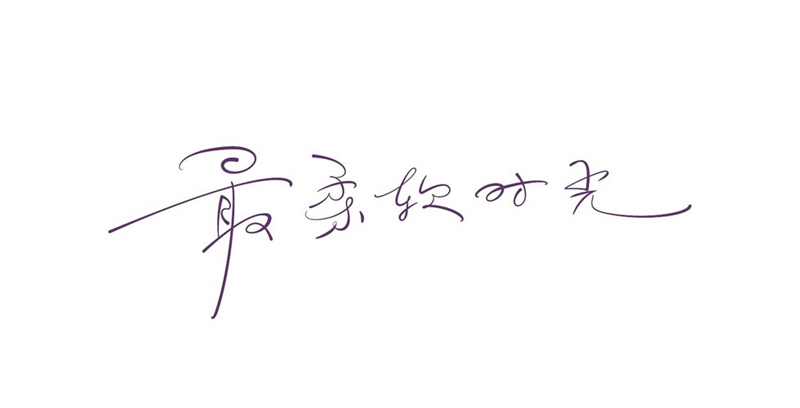 最柔软时光